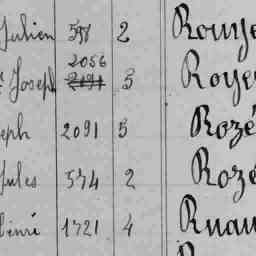 Julien 598 2 Rouye
2056
Joseph 2091 5 Royer
eph 2091 5 Rozé
Jules 574 2 Rozé
Henri 1721 4 Ruau